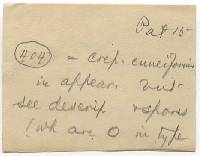 Pat 15
404 = crep. cuneiformis
in appear. but
see descrip. + spores
(wh are O in type